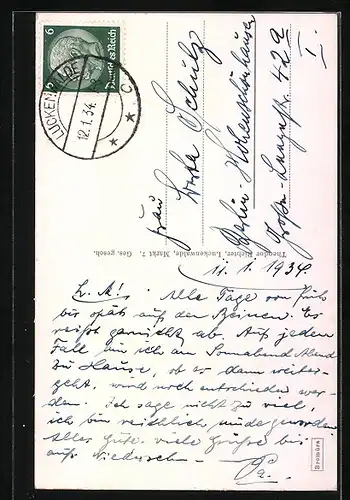 6
Deutsches Reich
LUCKENWALDE
12.1.34
* C *
Frau
Berta Schulz
Berlin-Hohenschönhausen
Große-Leegestr. 42a
I.
Theodor Richter, Luckenwalde, Markt 7. Ges. gesch.
11.1.1934.
L. M.! Alle Tage von früh
bis spät auf den Beinen. Es
reißt garnicht ab. Auf jeden
Fall bin ich am Sonnabend Abend
zu Hause, ob es dann weiter-
geht, wird noch entschieden wer-
den. Ich sage nicht zu viel,
ich bin reichlich müde geworden.
Alles Gute. viele Grüße bis
aufs Wiedersehn – Pa.
Bromüra